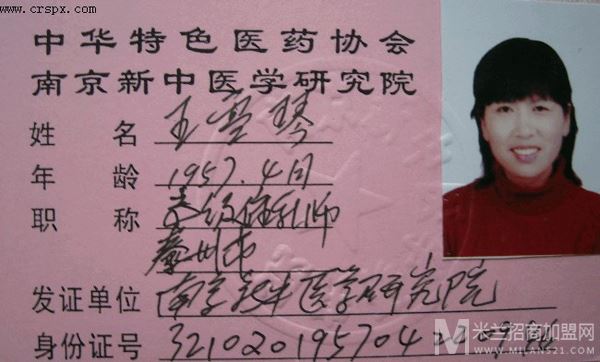 www.crspx.com
中华特色医药协会
南京新中医学研究院
姓 名 王雪琴
年 龄 1957.4月
职 称 高级催乳师
泰州市
发证单位 南京新中医学研究院
身份证号
米兰招商加盟网
WWW.MILAN521.COM